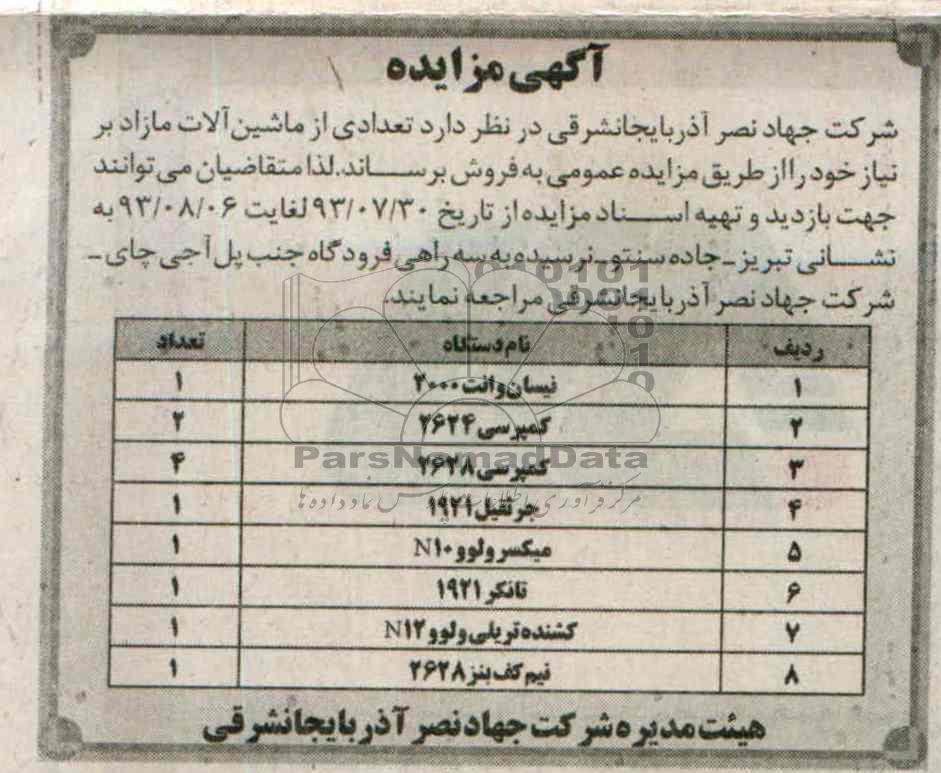 آگهی مزایده
شرکت جهاد نصر آذربایجانشرقی در نظر دارد تعدادی از ماشین آلات مازاد بر
نیاز خود را از طریق مزایده عمومی به فروش برساند. لذا متقاضیان می توانند
جهت بازدید و تهیه اسناد مزایده از تاریخ ۹۳/۰۷/۳۰ لغایت ۹۳/۰۸/۰۶ به
نشانی تبریز - جاده سنتو - نرسیده به سه راهی فرودگاه جنب پل آجی چای -
شرکت جهاد نصر آذربایجانشرقی مراجعه نمایند.
ردیف نام دستگاه تعداد
۱ نیسان وانت ۲۰۰۰ ۱
۲ کمپرسی ۲۶۲۴ ۲
۳ کمپرسی ۲۶۲۸ ۴
۴ جرثقیل ۱۹۲۱ ۱
۵ میکسر ولوو N۱۰ ۱
۶ تانکر ۱۹۲۱ ۱
۷ کشنده تریلی ولوو N۱۲ ۱
۸ نیم کف بنز ۲۶۲۸ ۱
ParsNomadData
هیئت مدیره شرکت جهاد نصر آذربایجانشرقی